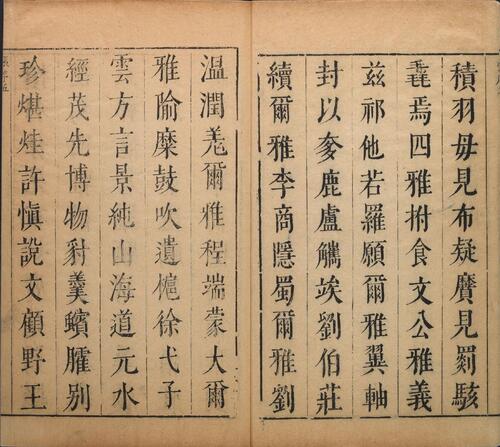 積羽毋見布疑黂見罽駭
毳焉四雅拊食文公雅義
茲祁他若羅願爾雅翼軸
封以鹿盧觿竢劉伯莊
續爾雅李商隱蜀爾雅劉
溫潤羗爾雅程端蒙大爾
雅隃糜鼓吹遺徐弋子
雲方言景純山海道元水
經茂先博物豺羹臛別
珍煁烓許慎說文顧野王